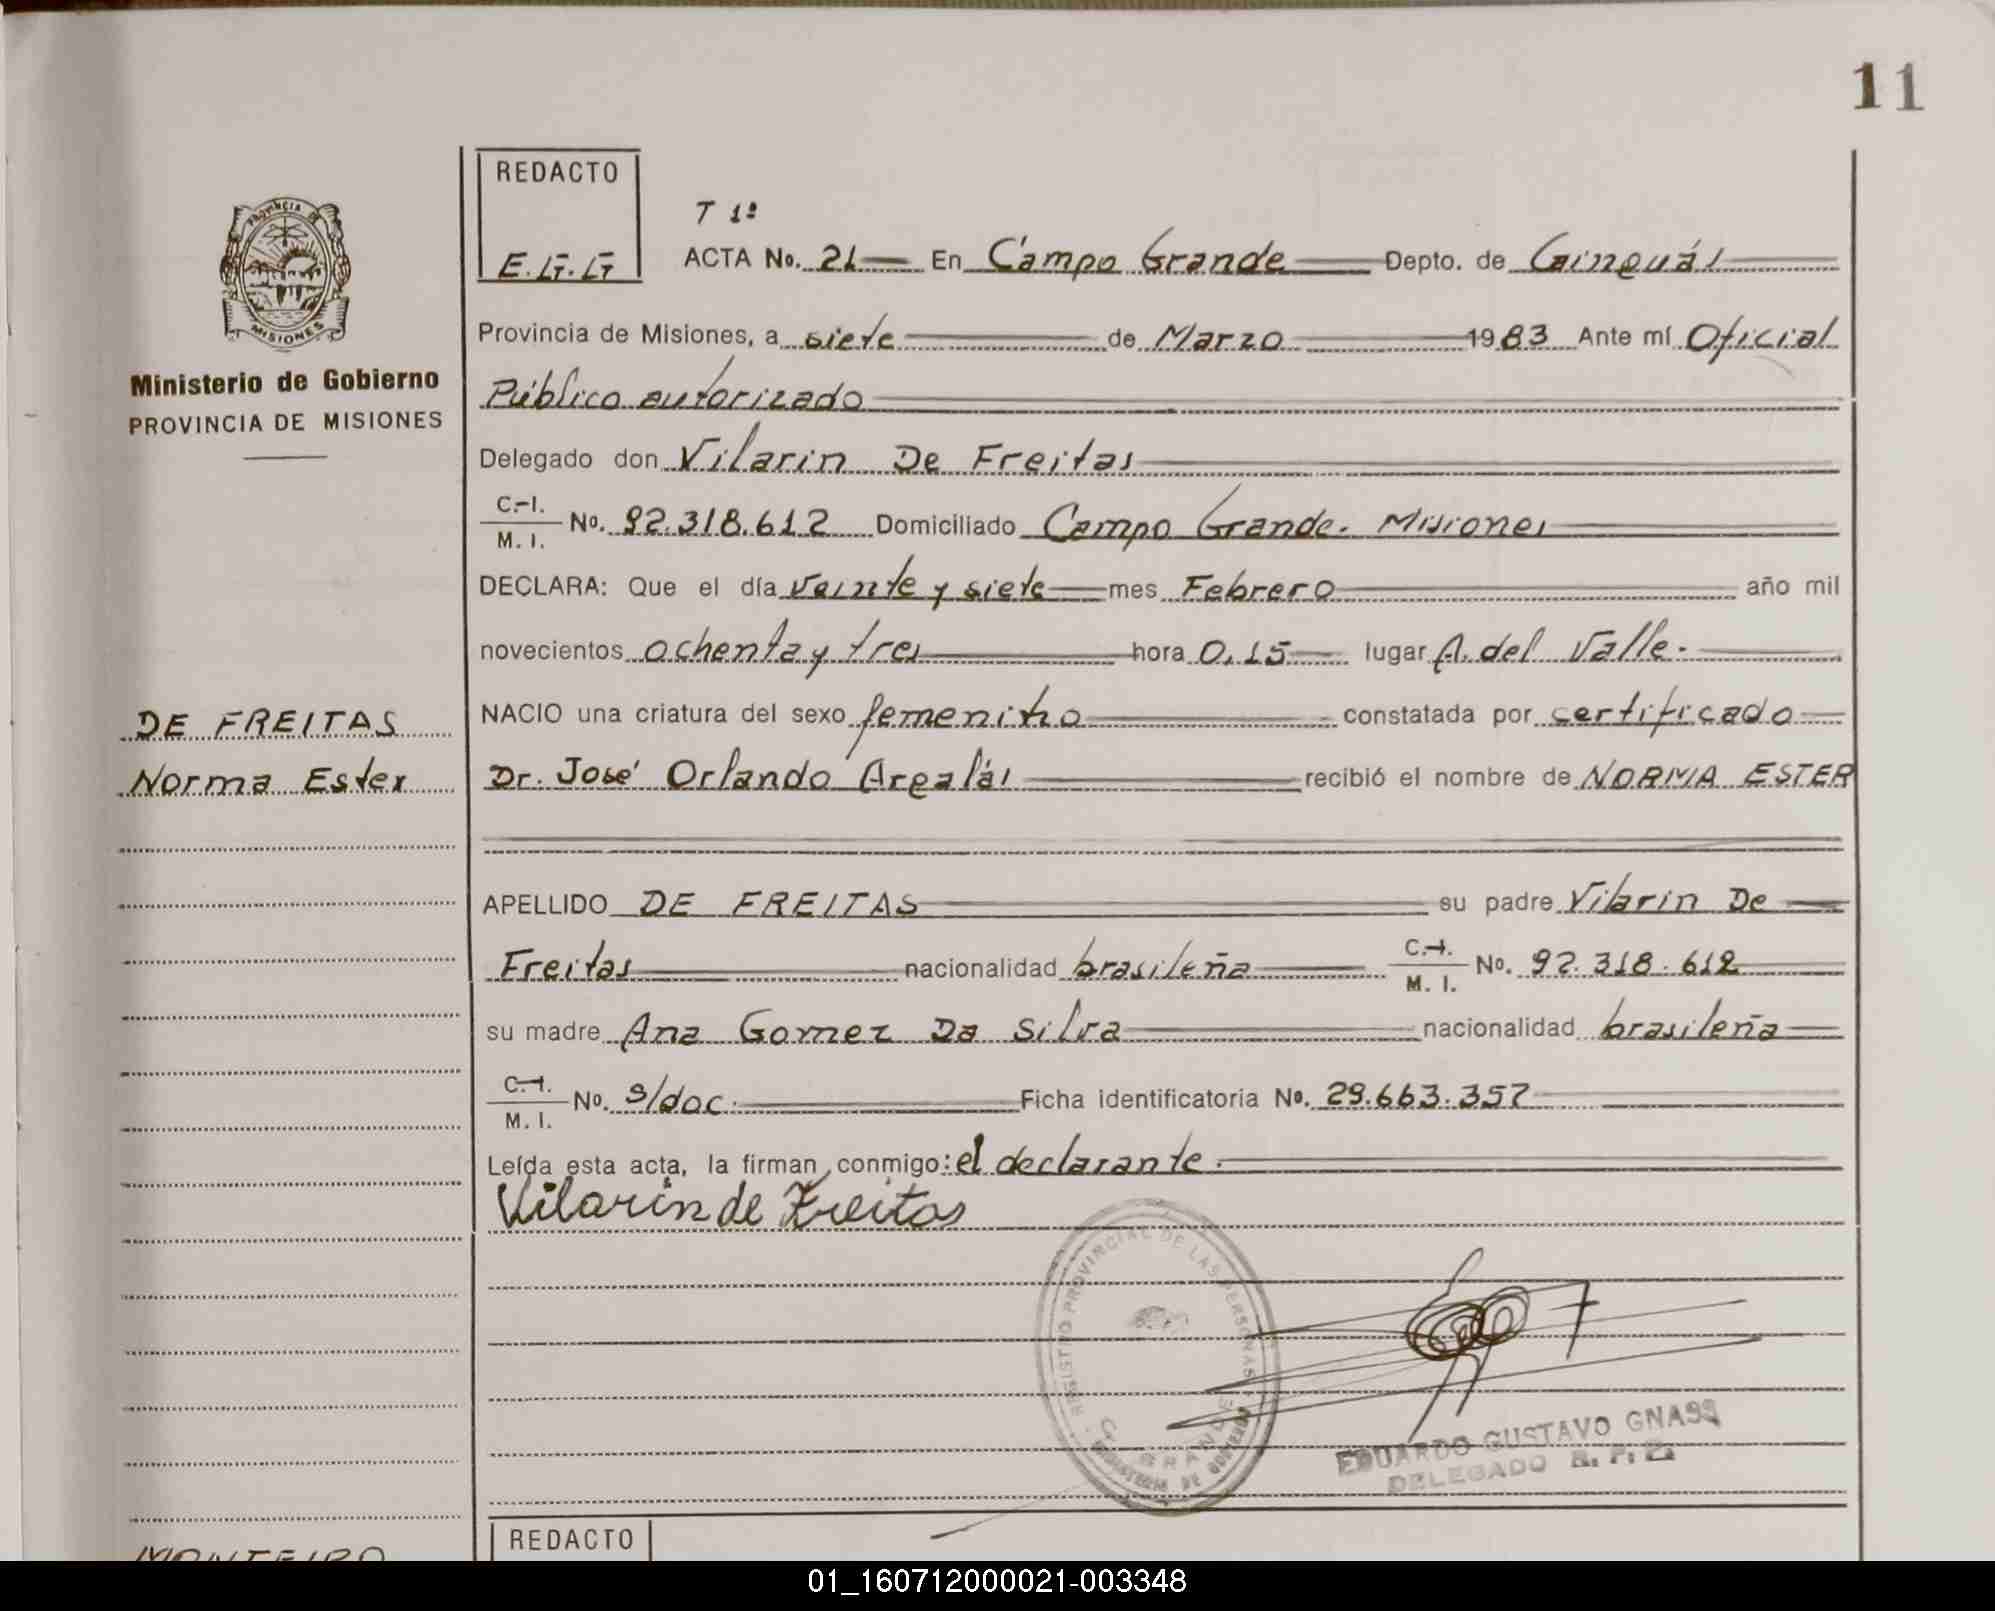 11
REDACTO
E.G.G
T 1º
ACTA No. 21 En Campo Grande Depto. de Cainguás
PROVINCIA DE
MISIONES
Ministerio de Gobierno
PROVINCIA DE MISIONES
Provincia de Misiones, a siete de Marzo 1983 Ante mí Oficial
Público autorizado
Delegado don Vilarin De Freitas
C.I.
M. I. No. 92.318.612 Domiciliado Campo Grande. Misiones
DECLARA: Que el día veinte y siete mes Febrero año mil
novecientos ochenta y tres hora 0,15 lugar A. del Valle.
DE FREITAS
Norma Ester
NACIO una criatura del sexo femenino constatada por certificado
Dr. José Orlando Argalás recibió el nombre de NORMA ESTER
APELLIDO DE FREITAS su padre Vilarin De
Freitas nacionalidad brasileña C.I.
M. I. No. 92.318.612
su madre Ana Gomez Da Silva nacionalidad brasileña
C.I.
M. I. No. s/doc. Ficha identificatoria No. 29.663.357
Leída esta acta, la firman conmigo: el declarante.
Vilarin de Freitas
REGISTRO PROVINCIAL DE LAS PERSONAS
C. GRANDE
MINISTERIO DE GOBIERNO
EDUARDO GUSTAVO GNASS
DELEGADO R. P. P.
REDACTO
MONTEIRO
01_160712000021-003348